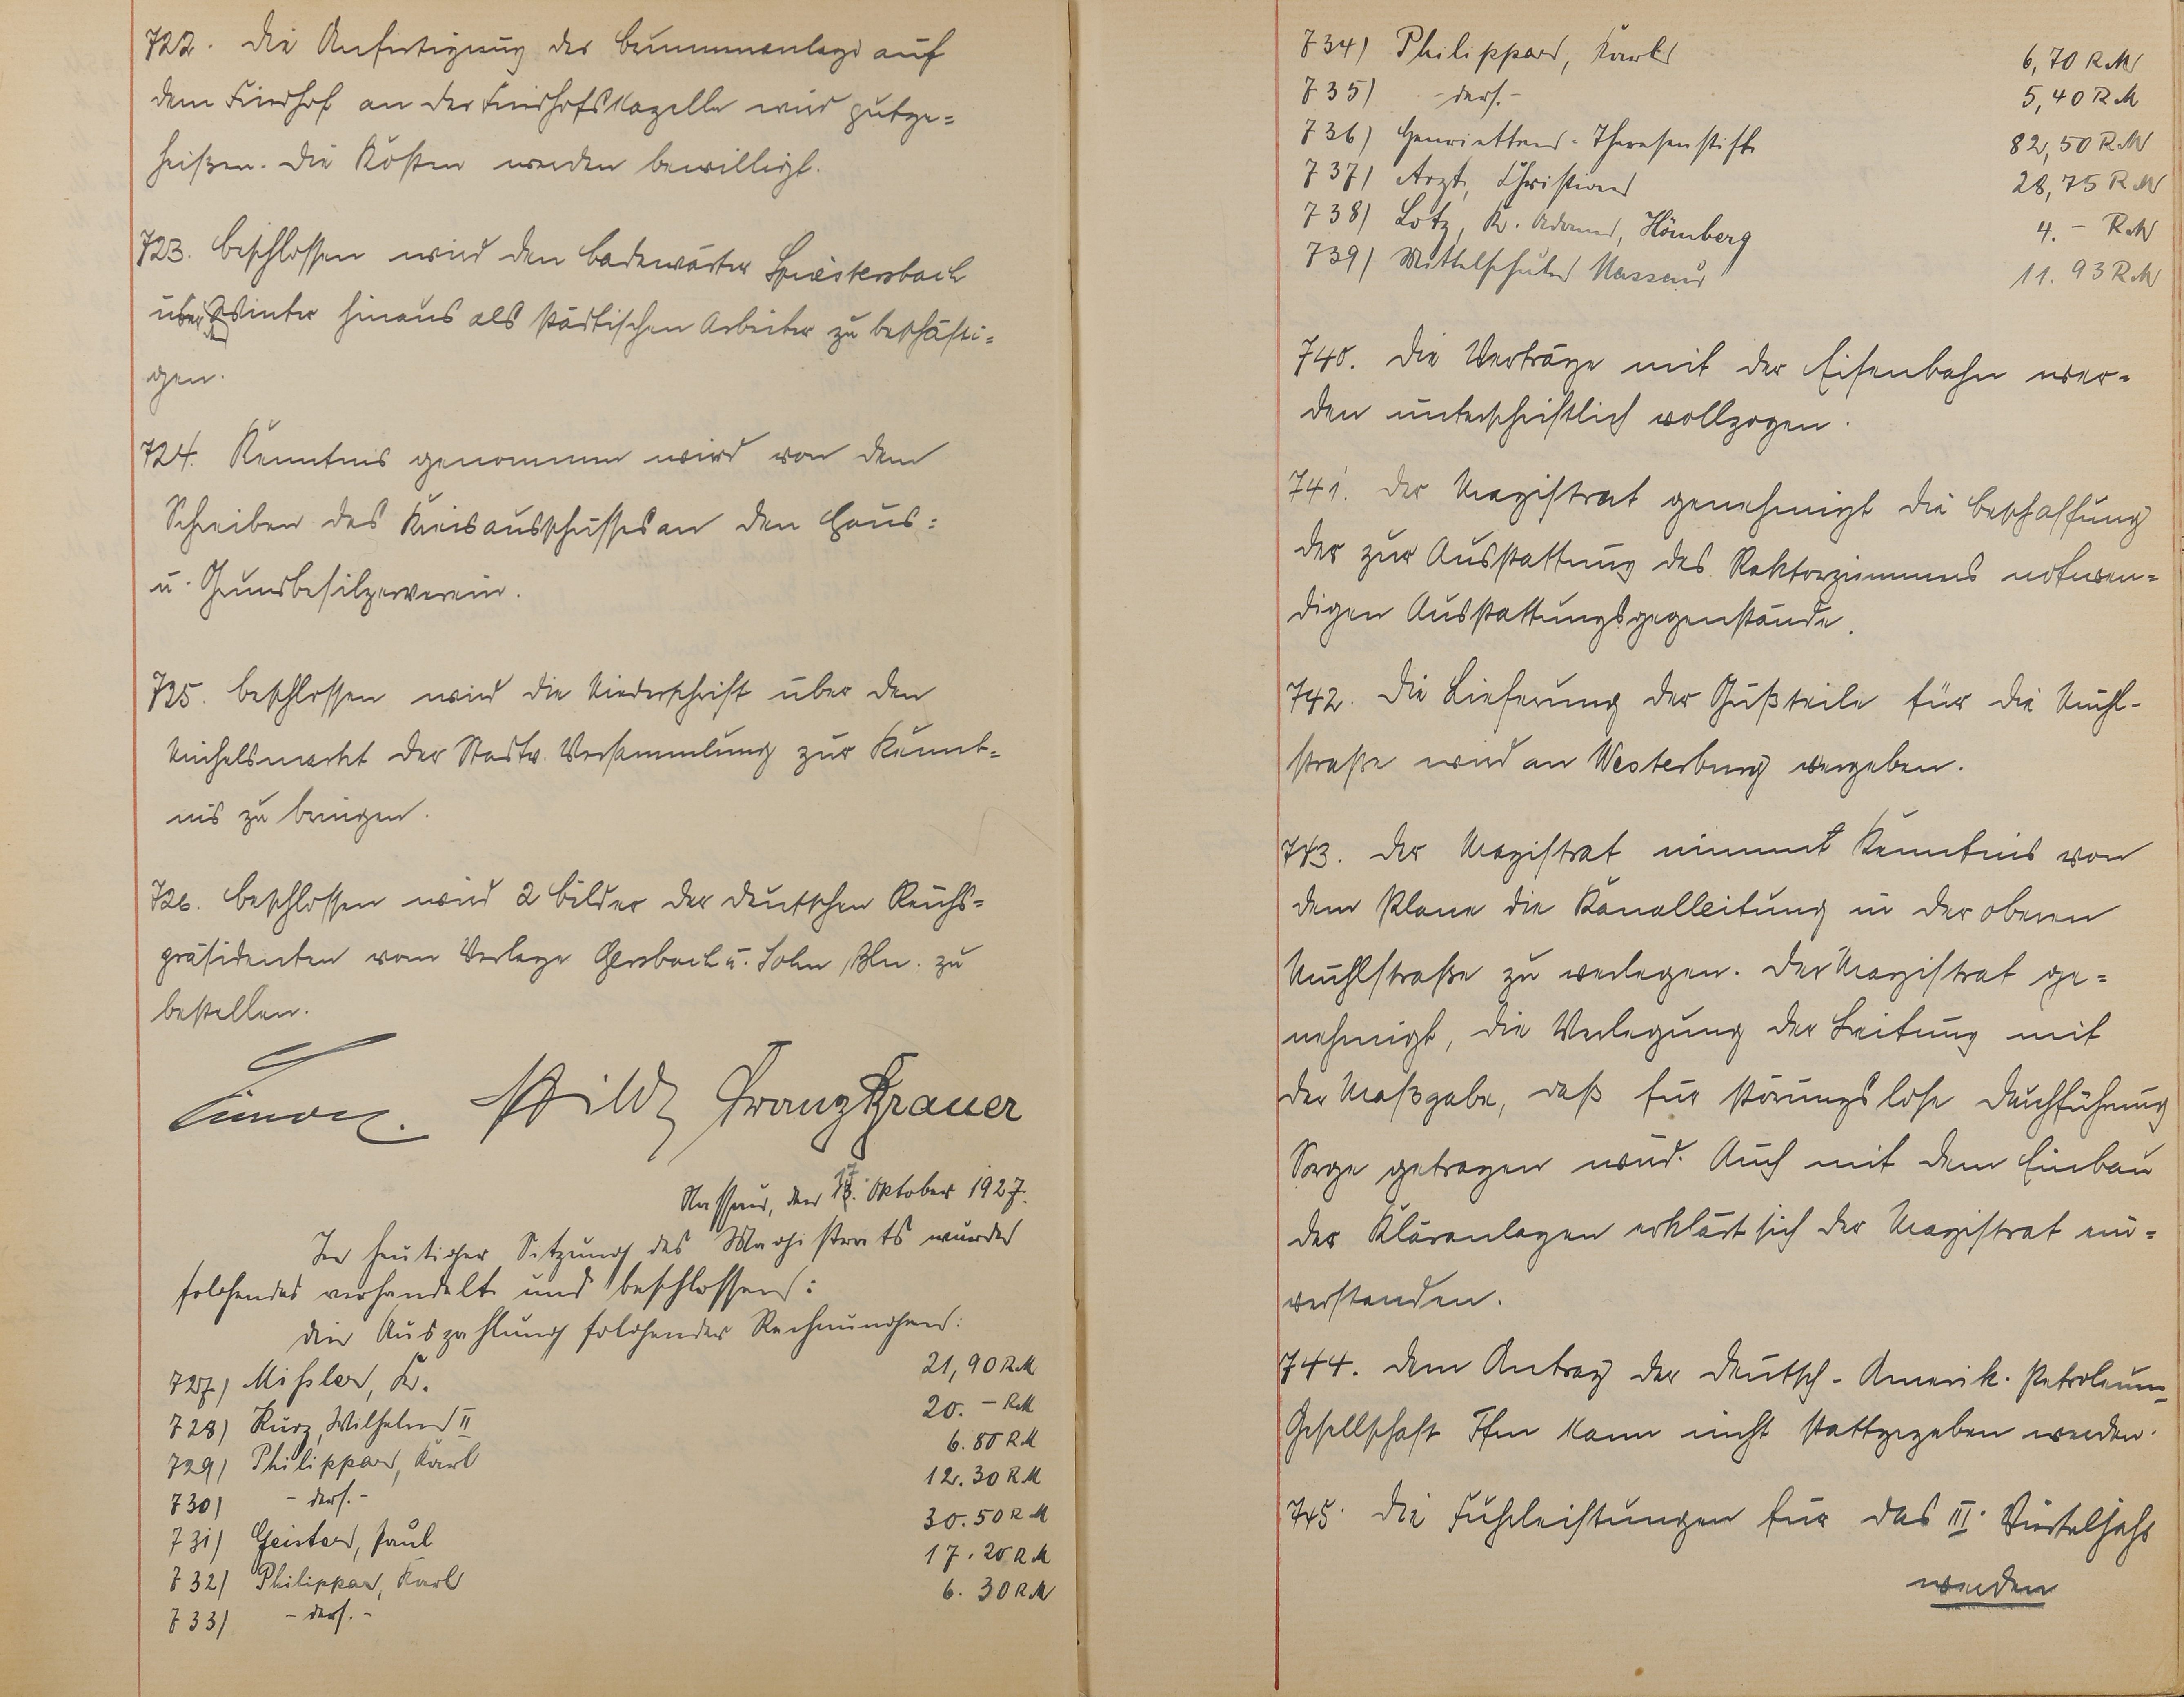 722. Die Anfertigung der Brunnenanlage auf
dem Friedhof an der Friedhofskapelle wird gutge=
heißen. Die Kosten werden bewilligt.
723. Beschlossen wird den Badewärter Spriestersbach
über den Winter hinaus als städtischen Arbeiter zu beschäfti=
gen.
724. Kenntnis genommen wird von dem
Schreiben des Kreisausschusses an den Haus=
u. Grundbesitzerverein.
725. Beschlossen wird die Niederschrift über den
Michelsmarkt der Stadtv. Versammlung zur Kennt=
nis zu bringen.
726. Beschlossen wird 2 Bilder der deutschen Reichs=
präsidenten vom Verlage Gersbach u. Sohn, Bln. zu
bestellen.
Franz Brauer
Nassau, den 17. Oktober 1927.
In heutiger Sitzung des Magistrats wurde
folgendes verhandelt und beschlossen:
die Auszahlung folgender Rechnungen:
727) Mißler, Kr. 21,90 RM
728) Kurz, Wilhelm II 20.- RM
729) Philippar, Karl 6.80 RM
730) -ders.- 12.30 RM
731) Geister, Paul 30.50 RM
732) Philippar, Karl 17.20 RM
733) -ders.- 6.30 RM
734) Philippar, Karl 6,70 RM
735) -ders.- 5,40 RM
736) Henrietten-Theresenstift 82,50 RM
737) Arzt, Christian 28,75 RM
738) Lotz, K. Adam, Hömberg 4.- RM
739) Mittelschule Nassau 11.93 RM
740. Die Verträge mit der Eisenbahn wer=
den unterschriftlich vollzogen.
741. Der Magistrat genehmigt die Beschaffung
der zur Ausstattung des Rektorzimmers notwen=
digen Ausstattungsgegenstände.
742. Die Lieferung der Gußteile für die Mühl=
straße wird an Westerburg vergeben.
743. Der Magistrat nimmt Kenntnis von
dem Plane die Kanalleitung in der oberen
Mühlstraße zu verlegen. Der Magistrat ge=
nehmigt, die Verlegung der Leitung mit
der Maßgabe, daß für störungslose Durchführung
Sorge getragen wird. Auch mit dem Einbau
der Kläranlagen erklärt sich der Magistrat ein=
verstanden.
744. Dem Antrag der Deutsch-Amerik. Petroleum=
Gesellschaft Ffm kann nicht stattgegeben werden.
745. Die Fuhrleistungen für das III. Vierteljahr
werden